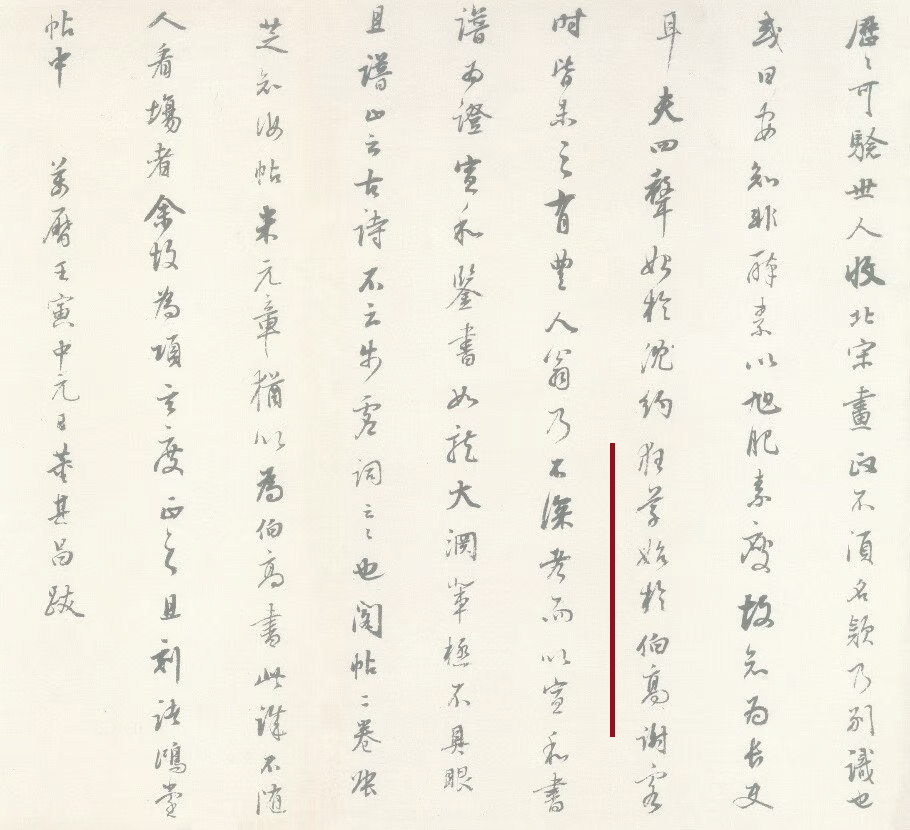 歷々可驗世人收北宋畫政不須名款乃別識也
或曰安知非醉素以旭肥素瘦故知為長史
耳夫四聲始於沈約狂草始於伯高謝客
時皆未之有豐人翁乃不深考而以宣和書
譜為證宣和鑒書如龍大淵輩極不具眼
且譜止云古詩不云步虛詞云々也閣帖二卷張
芝知汝帖米元章猶以為伯高書此誰不隨
人看場者余故為項玄度正之且刻諸鴻堂
帖中 萬曆壬寅中元日董其昌跋